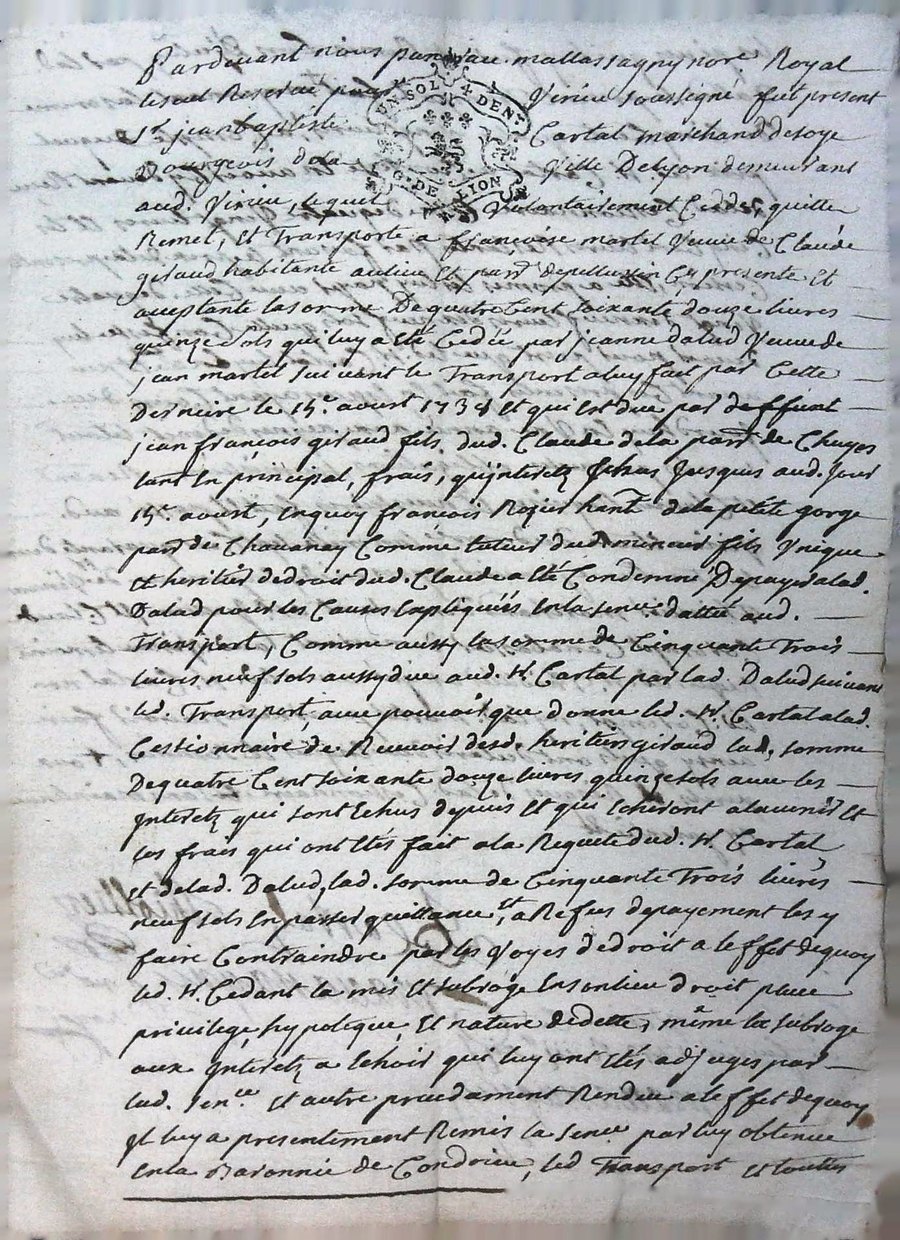 Pardevant nous pancrace mallassagny nore Royal
UN SOL 4 DEN.
G. DE LYON
Reservé pour Virieu soussigné fut present
Sr. jean baptiste Cartal marchand de soye
Bourgeois de la Ville De Lyon demeurant
aud. Virieu, lequel Volontairement Cedde, quitte
Remet, et Transporte a françoise martel Veuve de Claude
giraud habitante au lieu et parr. de pellussin Cy presente et
acceptante la somme De quatre Cent soixante douze livres
quinze sols qui luy a eté Cedée par jeanne dalud Veuve de
jean martel suivant le Transport a luy fait par Cette
Derniere le 15e. aoust 1734 et qui est due par deffunt
jean françois giraud fils dud. Claude de la parr. de Chuyes
tant en principal, frais, qu'interetz Echus jusques aud. jour
15e. aoust, en quoy françois Rozier hant. de la petite gorge
parr. de Chavanay Comme tuteur dud. mineur fils Unique
et heritier de droit dud. Claude a eté Condemné De payer a lad.
Dalud pour les Causes Expliquées En la sence. dattée aud.
Transport, Comme aussy la somme de Cinquante Trois
livres neuf sols aussy due aud. Sr. Cartal par lad. Dalud suivant
led. Transport, avec pouvoir que donne led. Sr. Cartal a lad.
Cessionnaire de Recevoir desd. heritiers giraud lad. somme
De quatre Cent soixante douze livres quinze sols avec les
Interetz qui sont Echus depuis et qui Echeront a l'avenir et
les frais qui ont etés fait a la Requete dud. Sr. Cartal
et de lad. Dalud, lad. somme de Cinquante Trois livres
neuf sols En passer quittance et a Refus de payement les y
faire Contraindre par les Voyes de droit a l'effet de quoy
led. Sr. Cedant la mis et subrogé En son lieu droit place
privilege, hypoteque et nature de dette, même la subroge
aux Interetz a Echoir qui luy ont etés adjugés par
lad. sence. et autre precedament Rendue a l'effet de quoy
Il luy a presentement Remis la sence. par luy obtenue
En la Baronnie de Condrieu, led. Transport et touttes